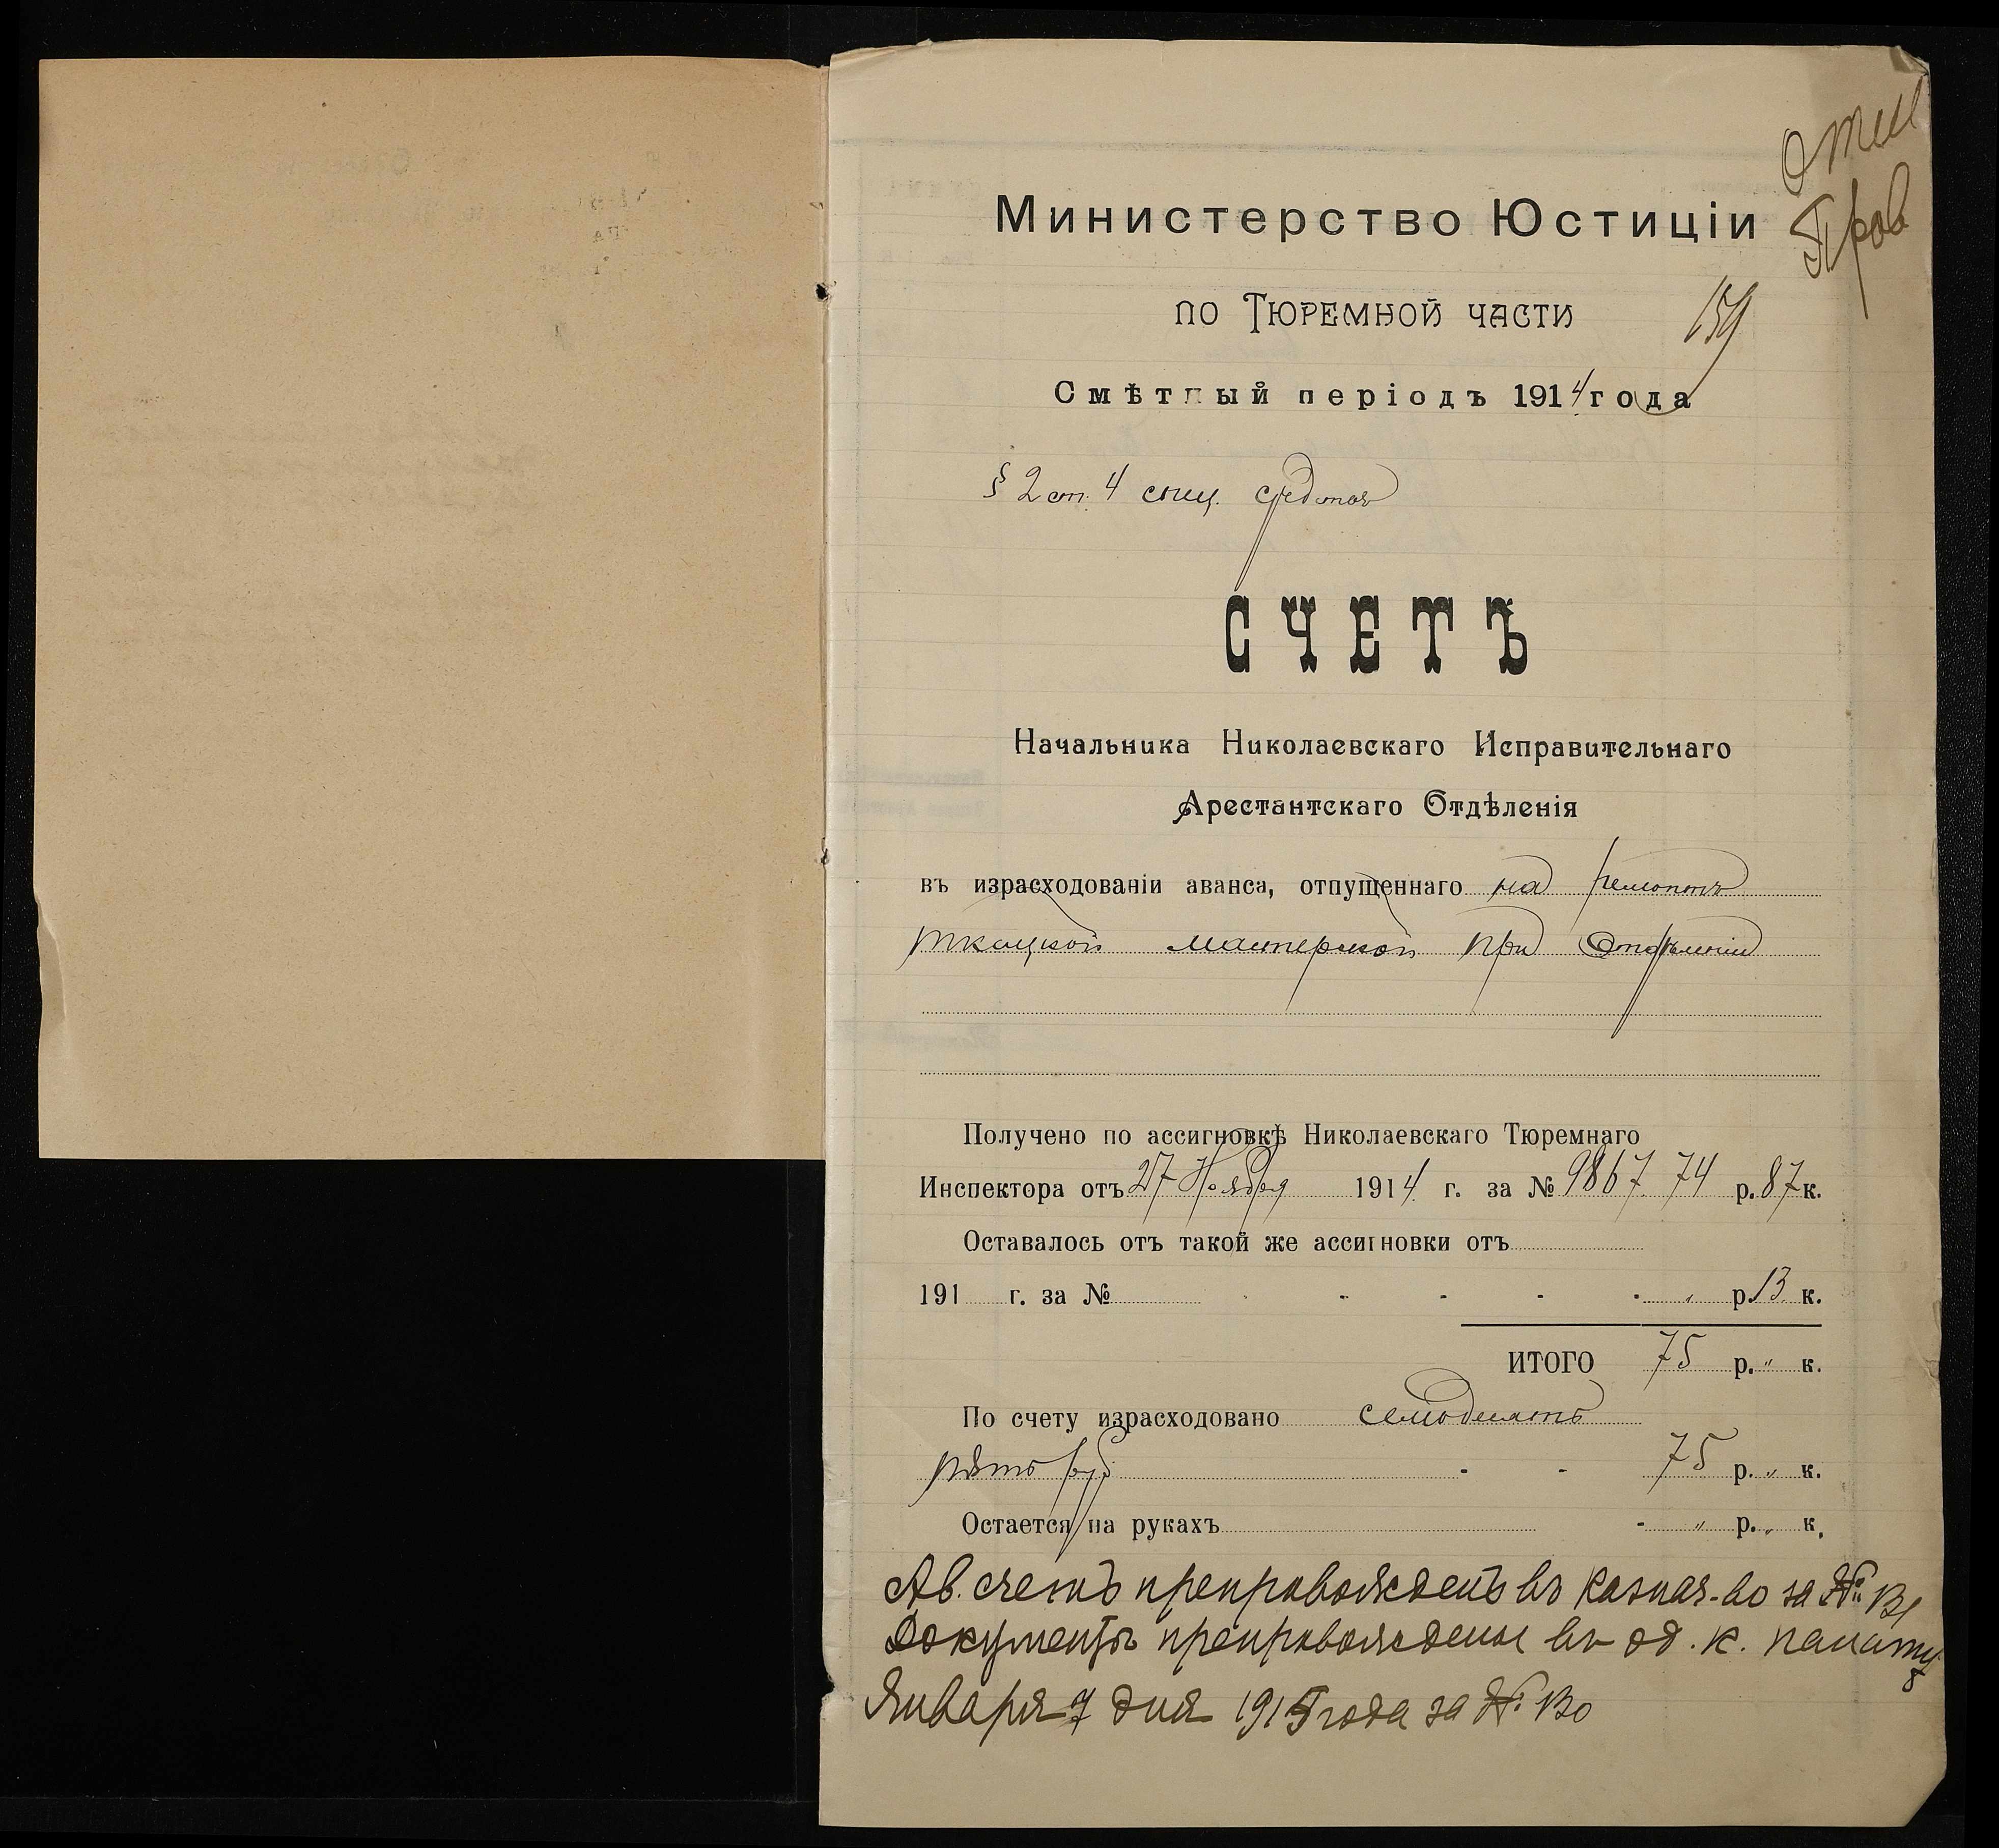 Отп
Пров
Министерство Юстиціи
по Тюремной части
159
Смѣтный періодъ 1914 года
§ 2 ст. 4 спец. средства
СЧЕТЪ
Начальника Николаевскаго Исправительнаго
Арестантскаго Отдѣленія
въ израсходованіи аванса, отпущеннаго на ремонтъ
ткацкой мастерской при Отдѣленіи
Получено по ассигновкѣ Николаевскаго Тюремнаго
Инспектора отъ 27 Ноября 1914 г. за № 9867. 74 р. 87 к.
Оставалось отъ такой же ассигновки отъ
191 г. за № - - - - " р. 13 к.
ИТОГО 75 р. " к.
По счету израсходовано семьдесятъ
пять руб - - 75 р. " к.
Остается на рукахъ - " р. " к.
Ав. счетъ препровожденъ въ Казнач-во за №
Документы препровождены въ од. к. палату
Января 7 дня 1915 года за № 130